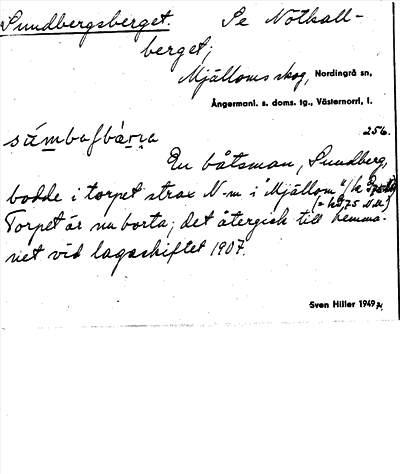 Sundbergsberget. Se Nötkall-
berget,
Mjälloms skog, Nordingrå sn,
Ångermanl. s. doms. tg., Västernorrl. l.
256.
En båtsman, Sundberg,
bodde i torpet strax N-m i "Mjällom"
Torpet är nu borta; det återgick till hemma-
net vid lagaskiftet 1907.
Sven Hiller 1949